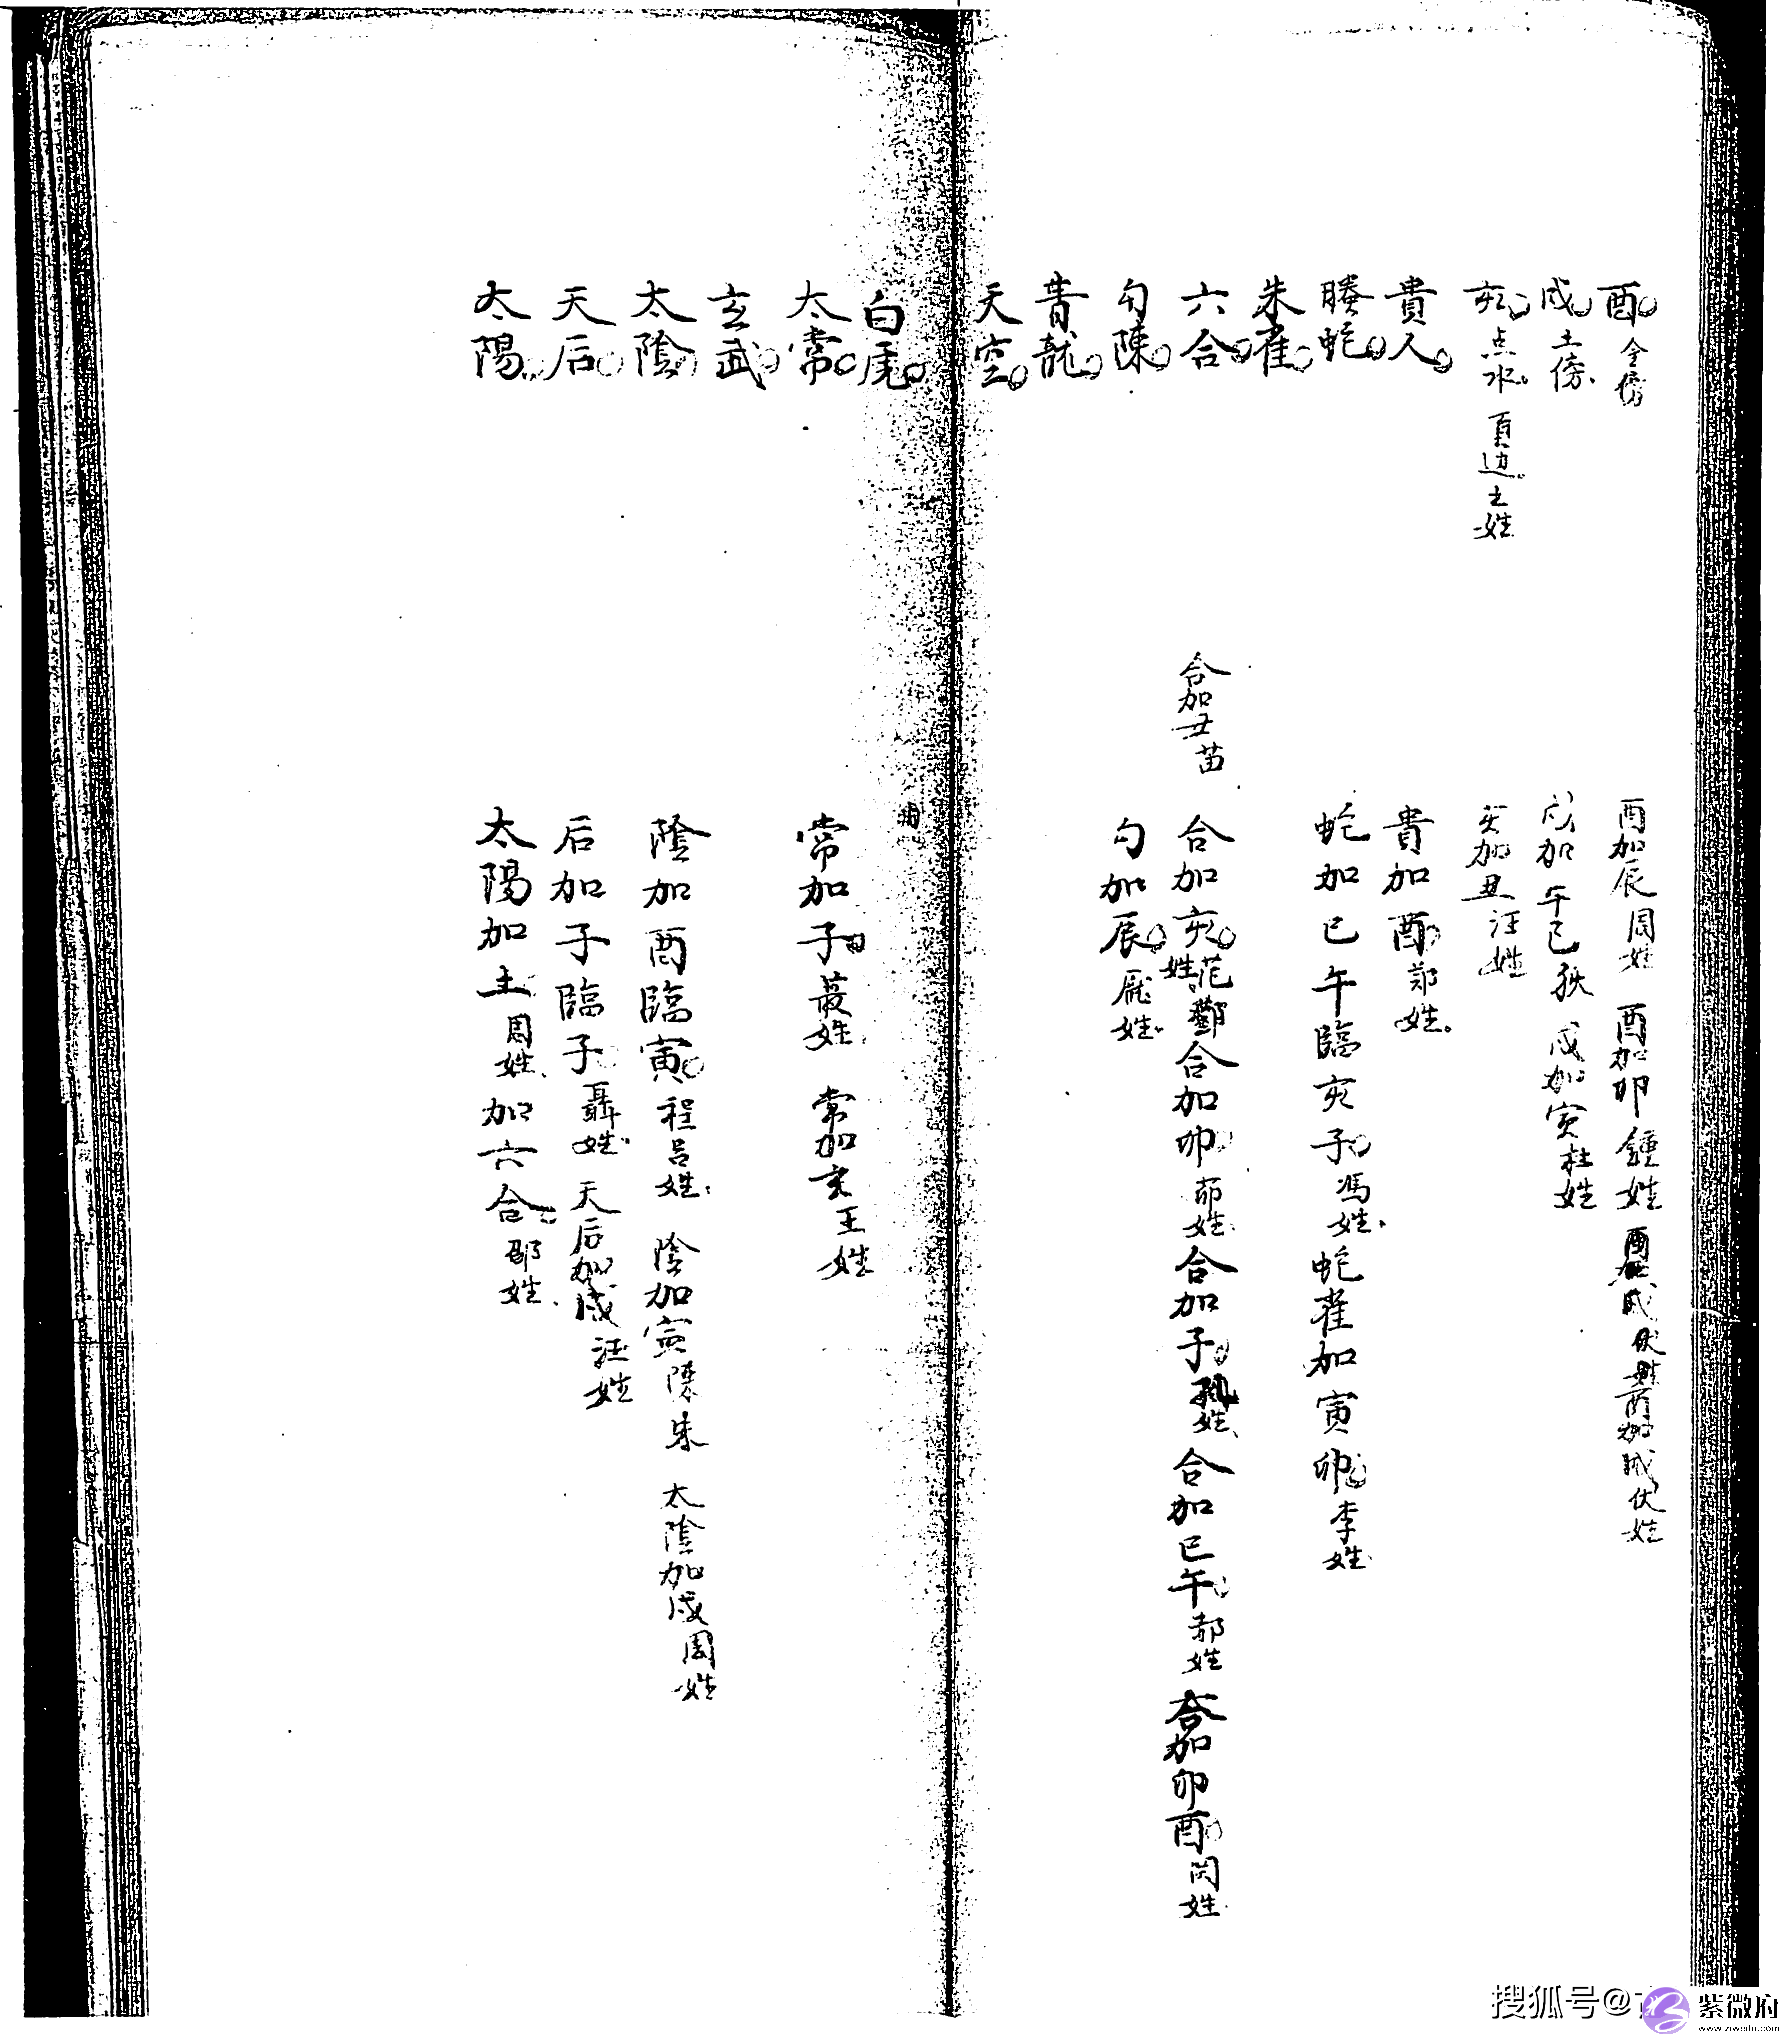 酉 金傍 酉加辰 周姓 酉加卯 鍾姓 酉加戌 伏姓 酉加戌 伏姓
戌 土傍 戌加午巳 狄 戌加寅 杜姓
亥 点水 頁边 土姓 亥加丑 汪姓
貴人 貴加酉 郑姓
螣蛇 蛇加巳午臨亥子 馮姓 蛇雀加寅卯 李姓
朱雀
六合 合加丑 苗 合加亥 范鄧姓 合加卯 茆姓 合加子 孫姓 合加巳午 郝姓 六合加卯酉 閃姓
勾陳 勾加辰 龐姓
青龍
天空
白虎
太常 常加子 聂姓 常加亥 王姓
玄武
太陰 陰加酉臨寅 程呂姓 陰加寅 陳朱 太陰加戌 周姓
天后 后加子臨子 聶姓 天后加戌 汪姓
太陽 太陽加土 周姓 加六合 邵姓
搜狐号@
紫微府
www.ziweifu.com